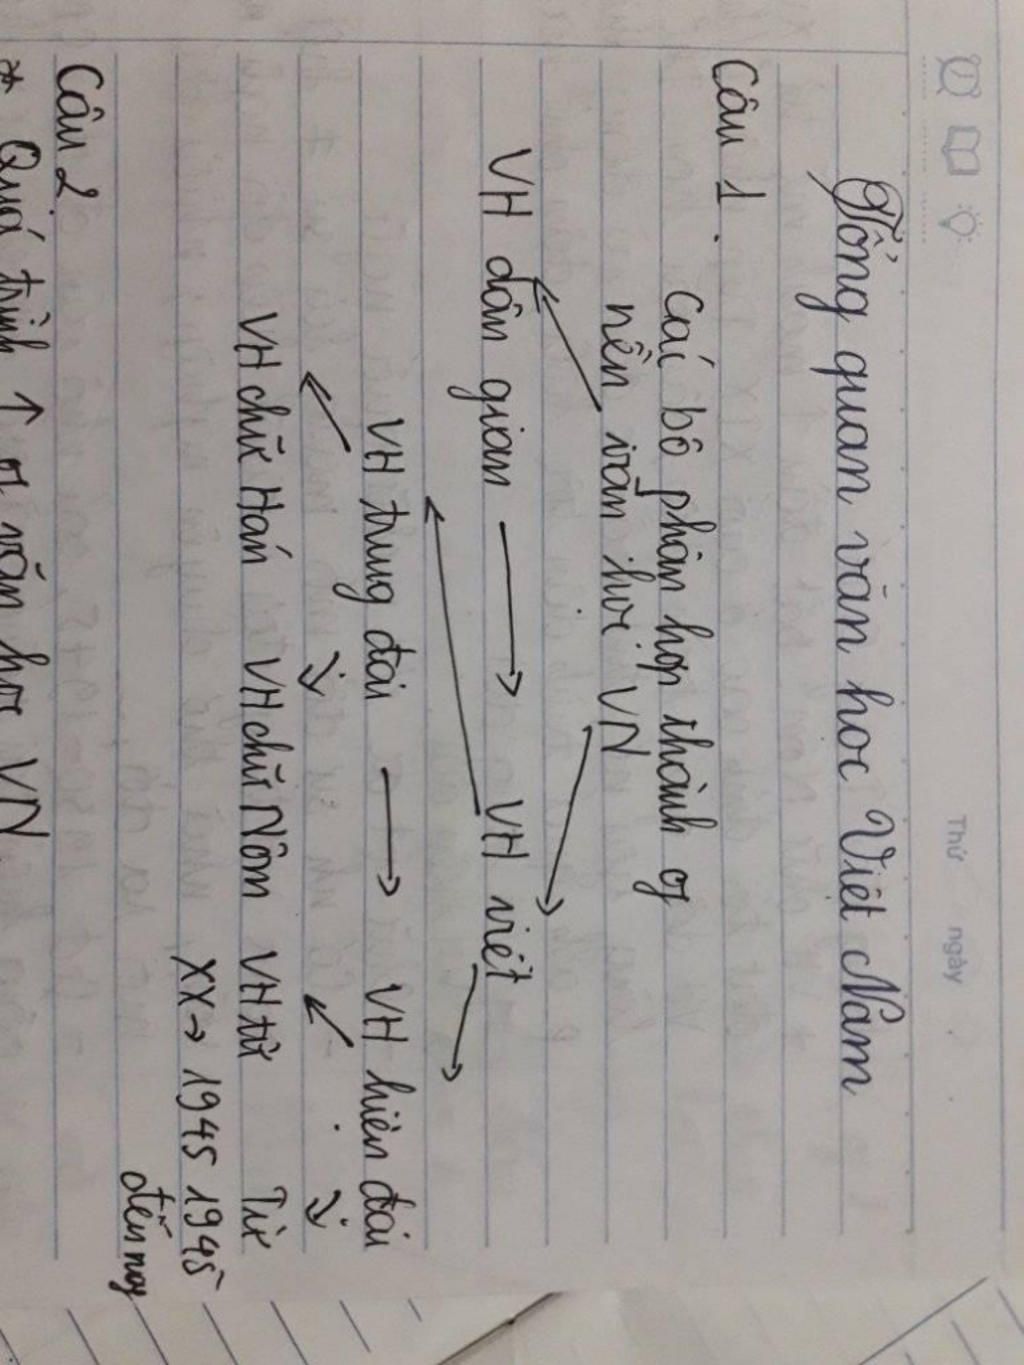 Thứ ngày
Tổng quan văn học Việt Nam
Câu 1.
Các bộ phận hợp thành of
nền văn học VN
VH dân gian → VH viết
VH trung đại → VH hiện đại
VH chữ Hán VH chữ Nôm VH từ Từ
XX → 1945 1945
đến nay
Câu 2
* Quá trình ↑ of văn học VN